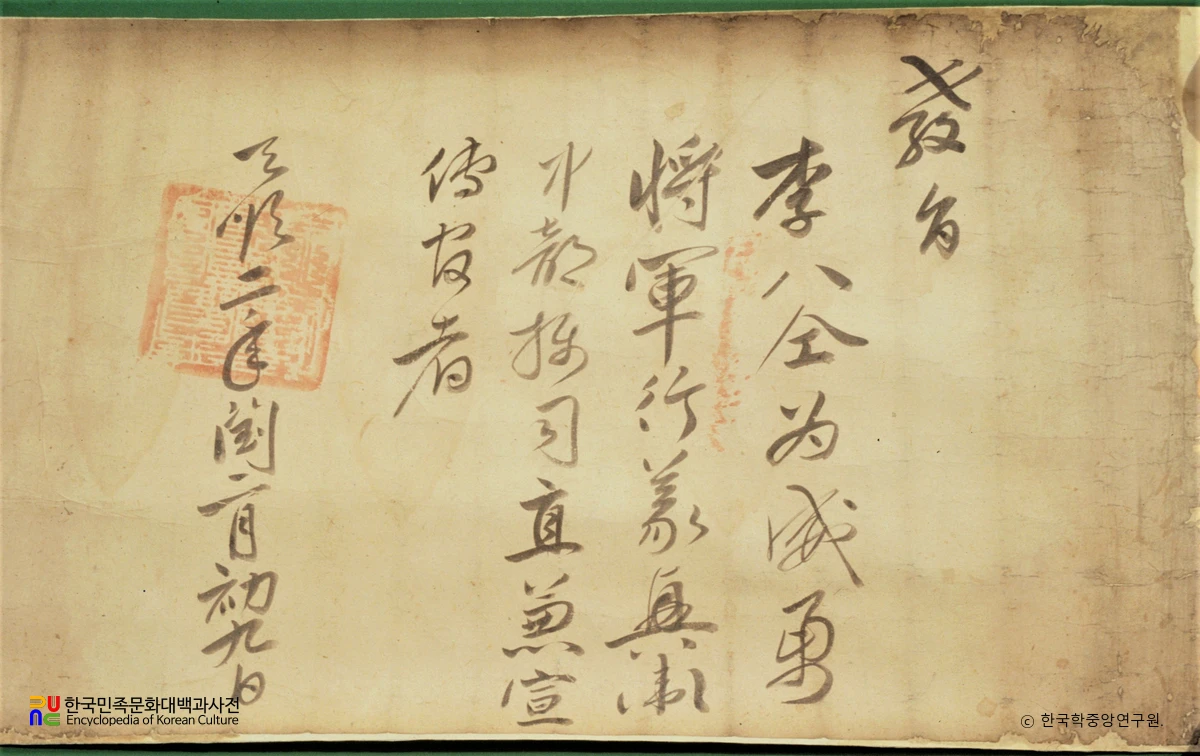 教旨
李八仝为威勇
將軍行義興衛
中部攝司直兼宣
傳官者
天順二年閏二月初九日
한국민족문화대백과사전
Encyclopedia of Korean Culture
© 한국학중앙연구원